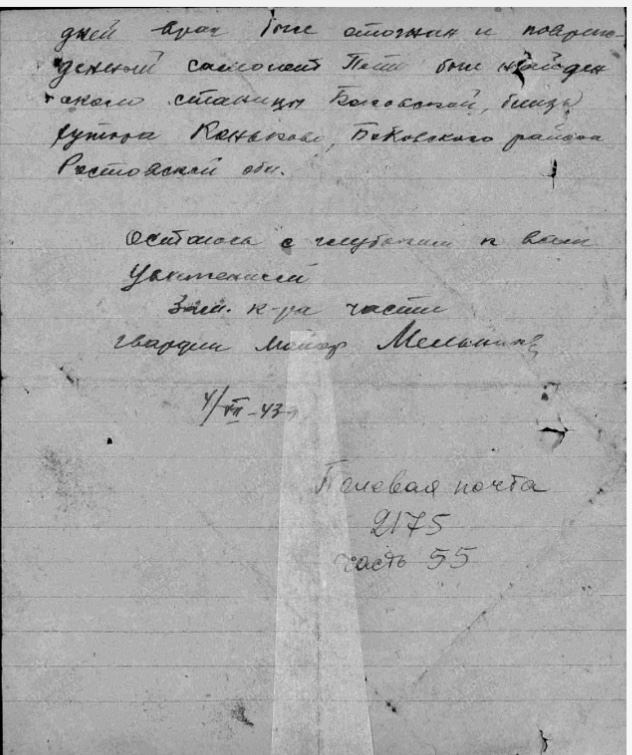 дней враг был отогнан и повреж-
денный самолет Пети был найден
около станицы Боковской, близ
хутора Коньково, Боковского района
Ростовской обл.
Остаюсь с глубоким к вам
уважением
Зам. к-ра части
гвардии майор
4/VII-43г
Полевая почта
2175
часть 55